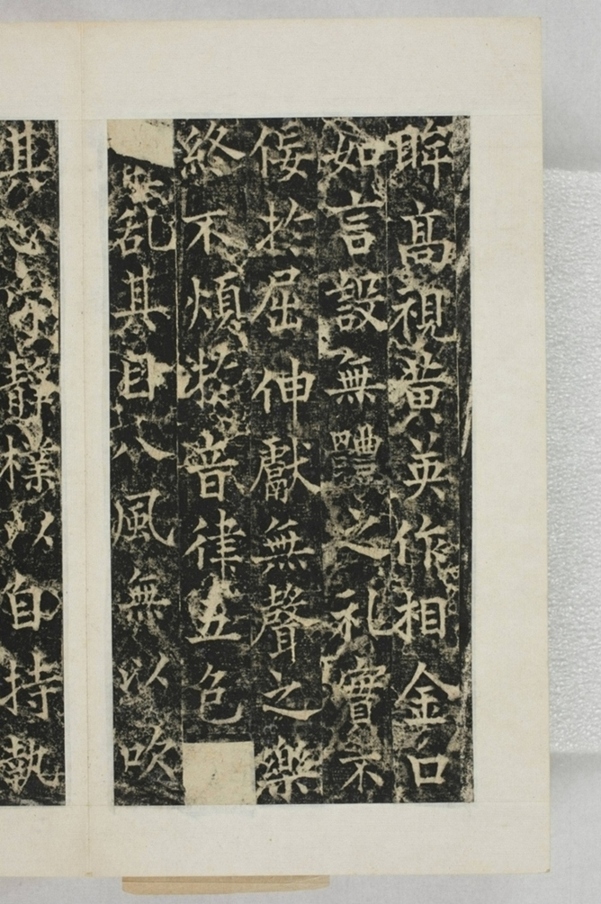 眸髙視黄英作相金口
如言設無體之礼實不
俟於屈伸獻無聲之樂
終不煩於音律五色
乱其目八風無以吹
其心守静樸以自持執